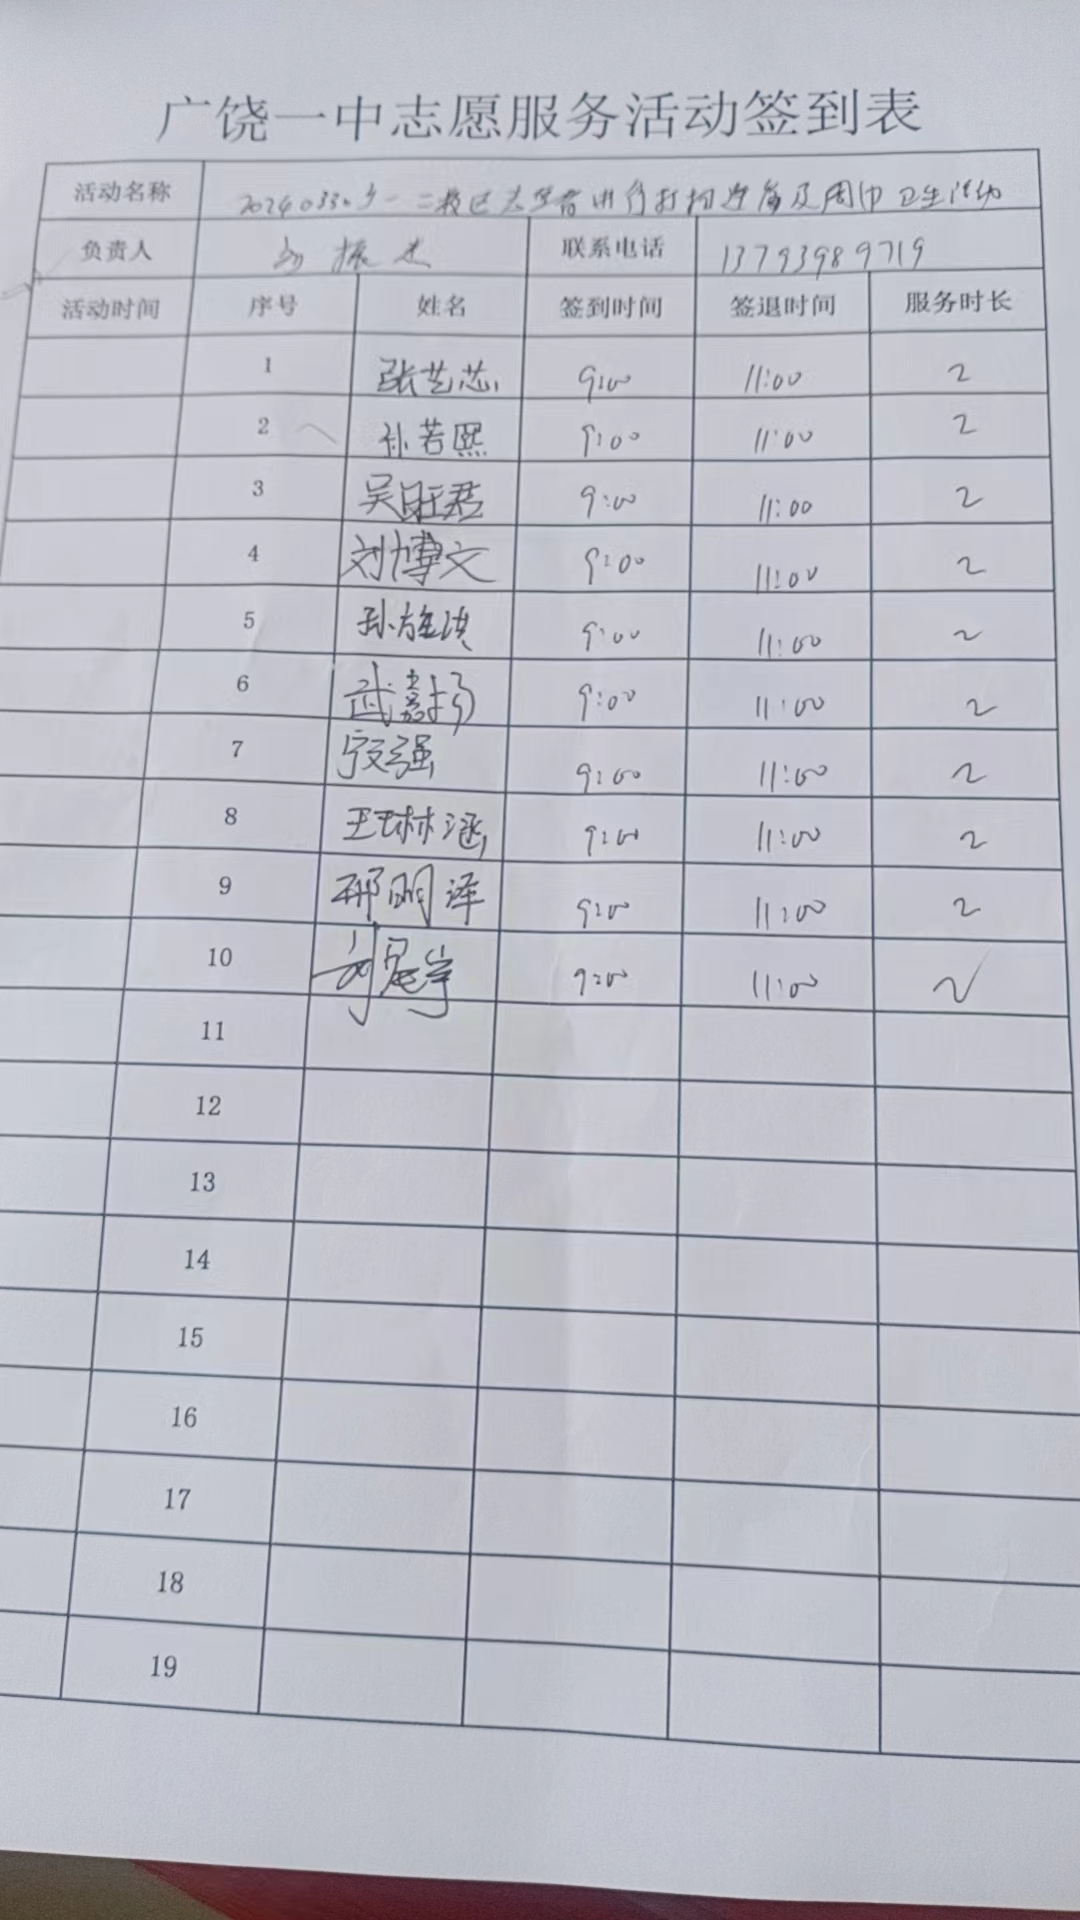 广饶一中志愿服务活动签到表
活动名称 20240330 一二校区志愿者进行打扫 及周边卫生活动
负责人 振 联系电话 13793989719
活动时间 序号 姓名 签到时间 签退时间 服务时长
1 张艺芯 9:00 11:00 2
2 孙若熙 9:00 11:00 2
3 吴旺君 9:00 11:00 2
4 刘博文 9:00 11:00 2
5 孙维洪 9:00 11:00 2
6 武嘉扬 9:00 11:00 2
7 强 9:00 11:00 2
8 王琳涵 9:00 11:00 2
9 邢明泽 9:00 11:00 2
10 9:00 11:00 2
11
12
13
14
15
16
17
18
19